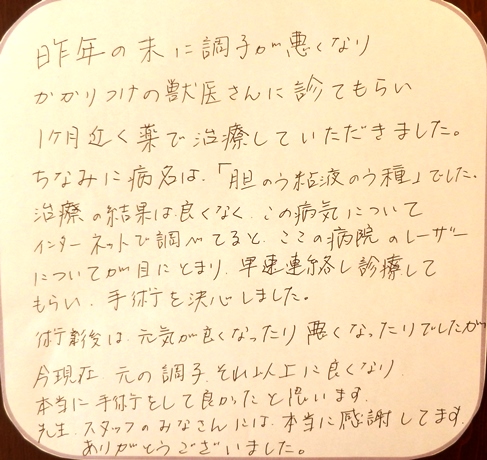 昨年の末に調子が悪くなり
かかりつけの獣医さんに診てもらい
1ヶ月近く薬で治療していただきました。
ちなみに病名は、「胆のう粘液のう種」でした。
治療の結果は良くなく、この病気について
インターネットで調べてると、ここの病院のレーザー
についてが目にとまり、早速連絡し診療して
もらい、手術を決心しました。
術後は、元気が良くなったり悪くなったりでしたが
今現在、元の調子、それ以上に良くなり、
本当に手術をして良かったと思います。
先生、スタッフのみなさんには、本当に感謝してます。
ありがとうございました。